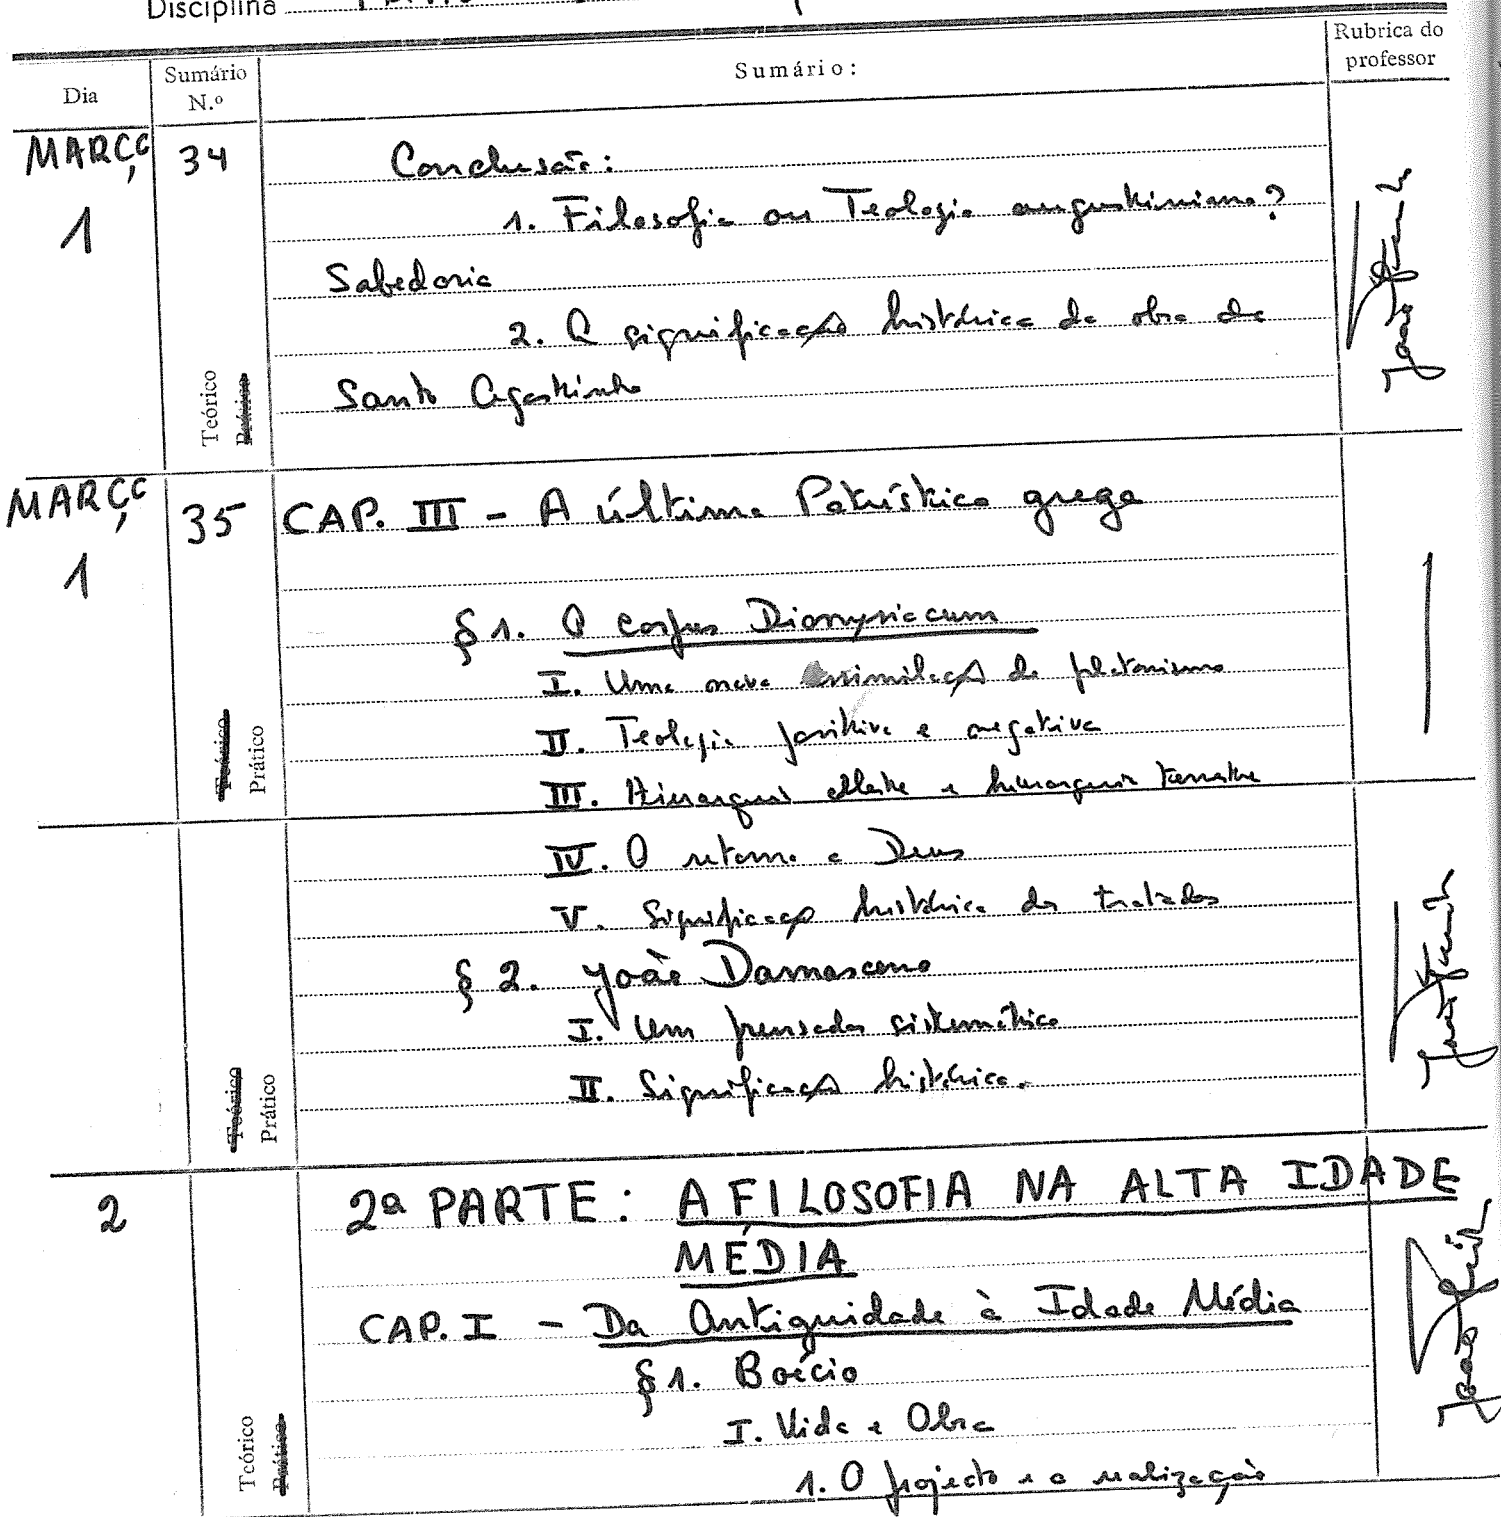 Disciplina
Dia
Sumário N.º
Sumário:
Rubrica do professor
MARÇO 1
34
Conclusão:
1. Filosofia ou Teologia augustiniana?
Sabedoria
2. A significação histórica da obra de
Santo Agostinho
Teórico
Prático
MARÇO 1
35
CAP. III - A última Patrística grega
§ 1. O corpus Dionysiacum
I. Uma nova assimilação do platonismo
II. Teologia positiva e negativa
III. Hierarquia celeste e hierarquia terrestre
Teórico
Prático
IV. O retorno a Deus
V. Significação histórica dos tratados
§ 2. João Damasceno
I. Um pensador sistemático
II. Significação histórica.
Teórico
Prático
2
2ª PARTE: A FILOSOFIA NA ALTA IDADE
MÉDIA
CAP. I - Da Antiguidade à Idade Média
§ 1. Boécio
I. Vida e Obra
1. O projecto e a realização
Teórico
Prático